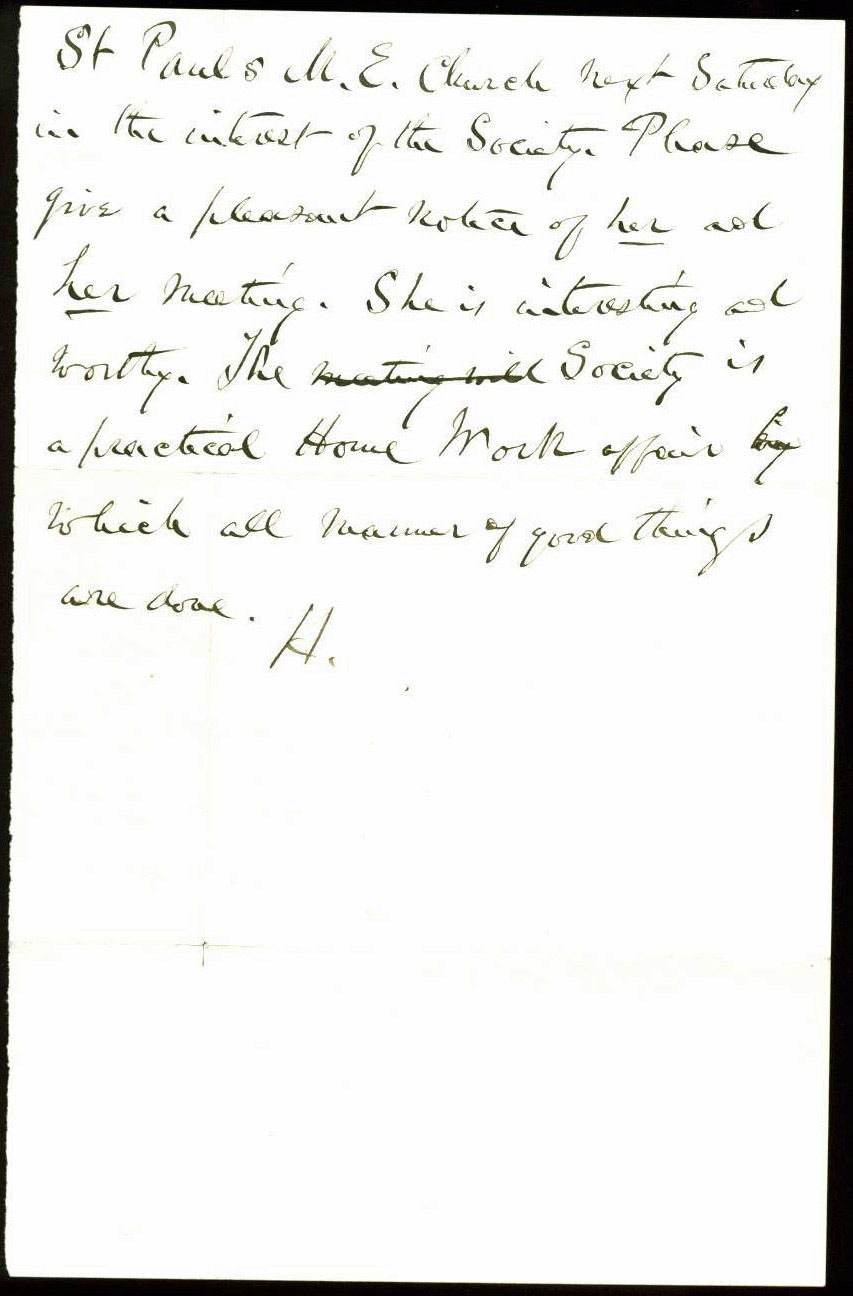 St Pauls M.E. Church next Saturday
in the interest of the Society. Please
give a pleasant notice of her ad
her meeting. She is interesting ad
worthy. The meeting will Society is
a practical Home Work affair by
which all manner of good things
are done. H.